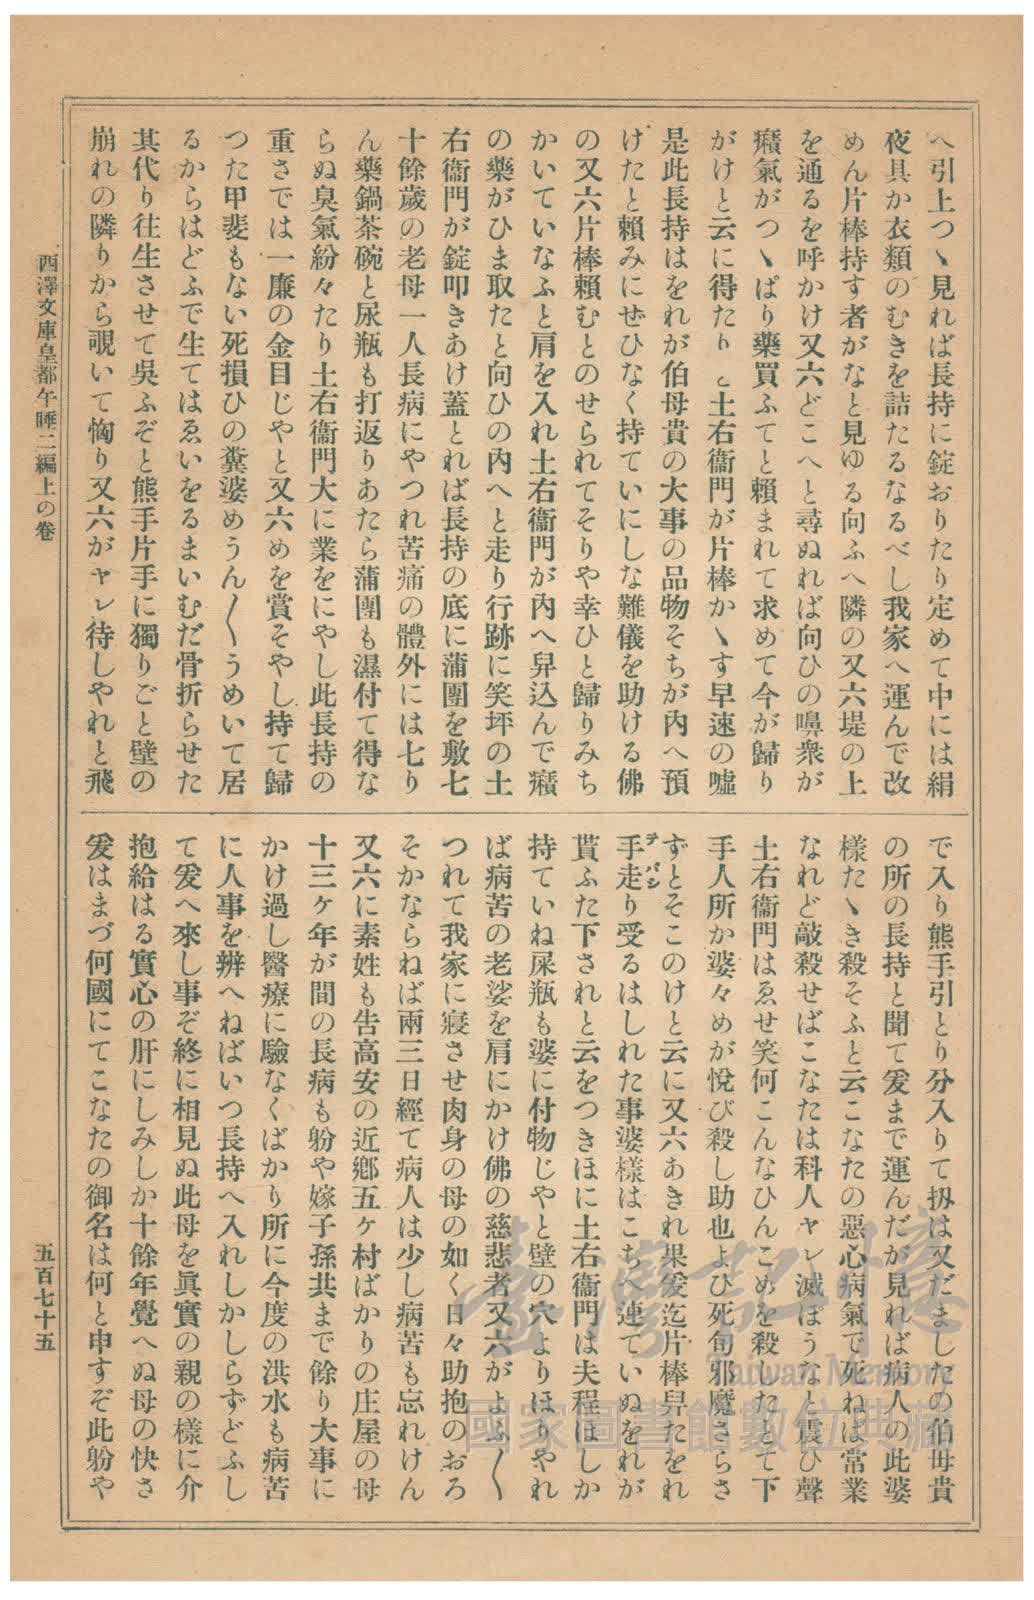 へ引上つヽ見れば長持に錠おりたり定めて中には絹
夜具か衣類のむきを詰たるなるべし我家へ運んで改
めん片棒持す者がなと見ゆる向ふへ隣の又六堤の上
を通るを呼かけ又六どこへと尋ぬれば向ひの嚊衆が
癪氣がつヽぱり藥買ふてと賴まれて求めて今が歸り
がけと云に得たりと土右衞門が片棒かヽす早速の噓
是此長持はをれが伯母貴の大事の品物そちが內へ預
けたと賴みにぜひなく持ていにしな難儀を助ける佛
の又六片棒賴むとのせられてそりや幸ひと歸りみち
かいていなふと肩を入れ土右衞門が內へ舁込んで癪
の藥がひま取たと向ひの內へと走り行跡に笑坪の土
右衞門が錠叩きあけ蓋とれば長持の底に蒲團を敷七
十餘歲の老母一人長病にやつれ苦痛の體外には七り
ん藥鍋茶碗と尿瓶も打返りあたら蒲團も濕付て得な
らぬ臭氣紛々たり土右衞門大に業をにやし此長持の
重さでは一廉の金目じやと又六めを賞そやし持て歸
つた甲斐もない死損ひの糞婆めうん〱うめいて居
るからはどふで生てはゑいをるまいむだ骨折らせた
其代り往生させて吳ふぞと熊手片手に獨りごと壁の
崩れの隣りから覗いて恟り又六がヤレ待しやれと飛
で入り熊手引とり分入りて扨は又だましたの伯母貴
の所の長持と聞て爰まで運んだが見れば病人の此婆
樣たヽき殺そふと云こなたの惡心病氣で死ねは常業
なれど敲殺せばこなたは科人ヤレ滅ぽうなと震ひ聲
土右衞門はゑせ笑何こんなひんこめを殺したとて下
手人所か婆々めが悅び殺し助也よひ死旬邪魔さらさ
ずとそこのけと云に又六あきれ果爰迄片棒舁たをれ
手走り受るはしれた事婆樣はこちへ連ていぬをれが
テバシ
貰ふた下されと云をつきほに土右衞門は夫程ほしか
持ていね屎瓶も婆に付物じやと壁の穴よりほりやれ
ば病苦の老娑を肩にかけ佛の慈悲者又六がよふ〱
つれて我家に寢させ肉身の母の如く日々助抱のおろ
そかならねば兩三日經て病人は少し病苦も忘れけん
又六に素姓も告高安の近鄕五ヶ村ばかりの庄屋の母
十三ヶ年が間の長病も躮や嫁子孫共まで餘り大事に
かけ過し醫療に驗なくばかり所に今度の洪水も病苦
に人事を辨へねばいつ長持へ入れしかしらずどふし
て爰へ來し事ぞ終に相見ぬ此母を眞實の親の樣に介
抱給はる實心の肝にしみしか十餘年覺へぬ母の快さ
爰はまづ何國にてこなたの御名は何と申すぞ此躮や
西澤文庫皇都午睡二編上の卷
五百七十五
臺灣記憶
Taiwan Memory
國家圖書館數位典藏